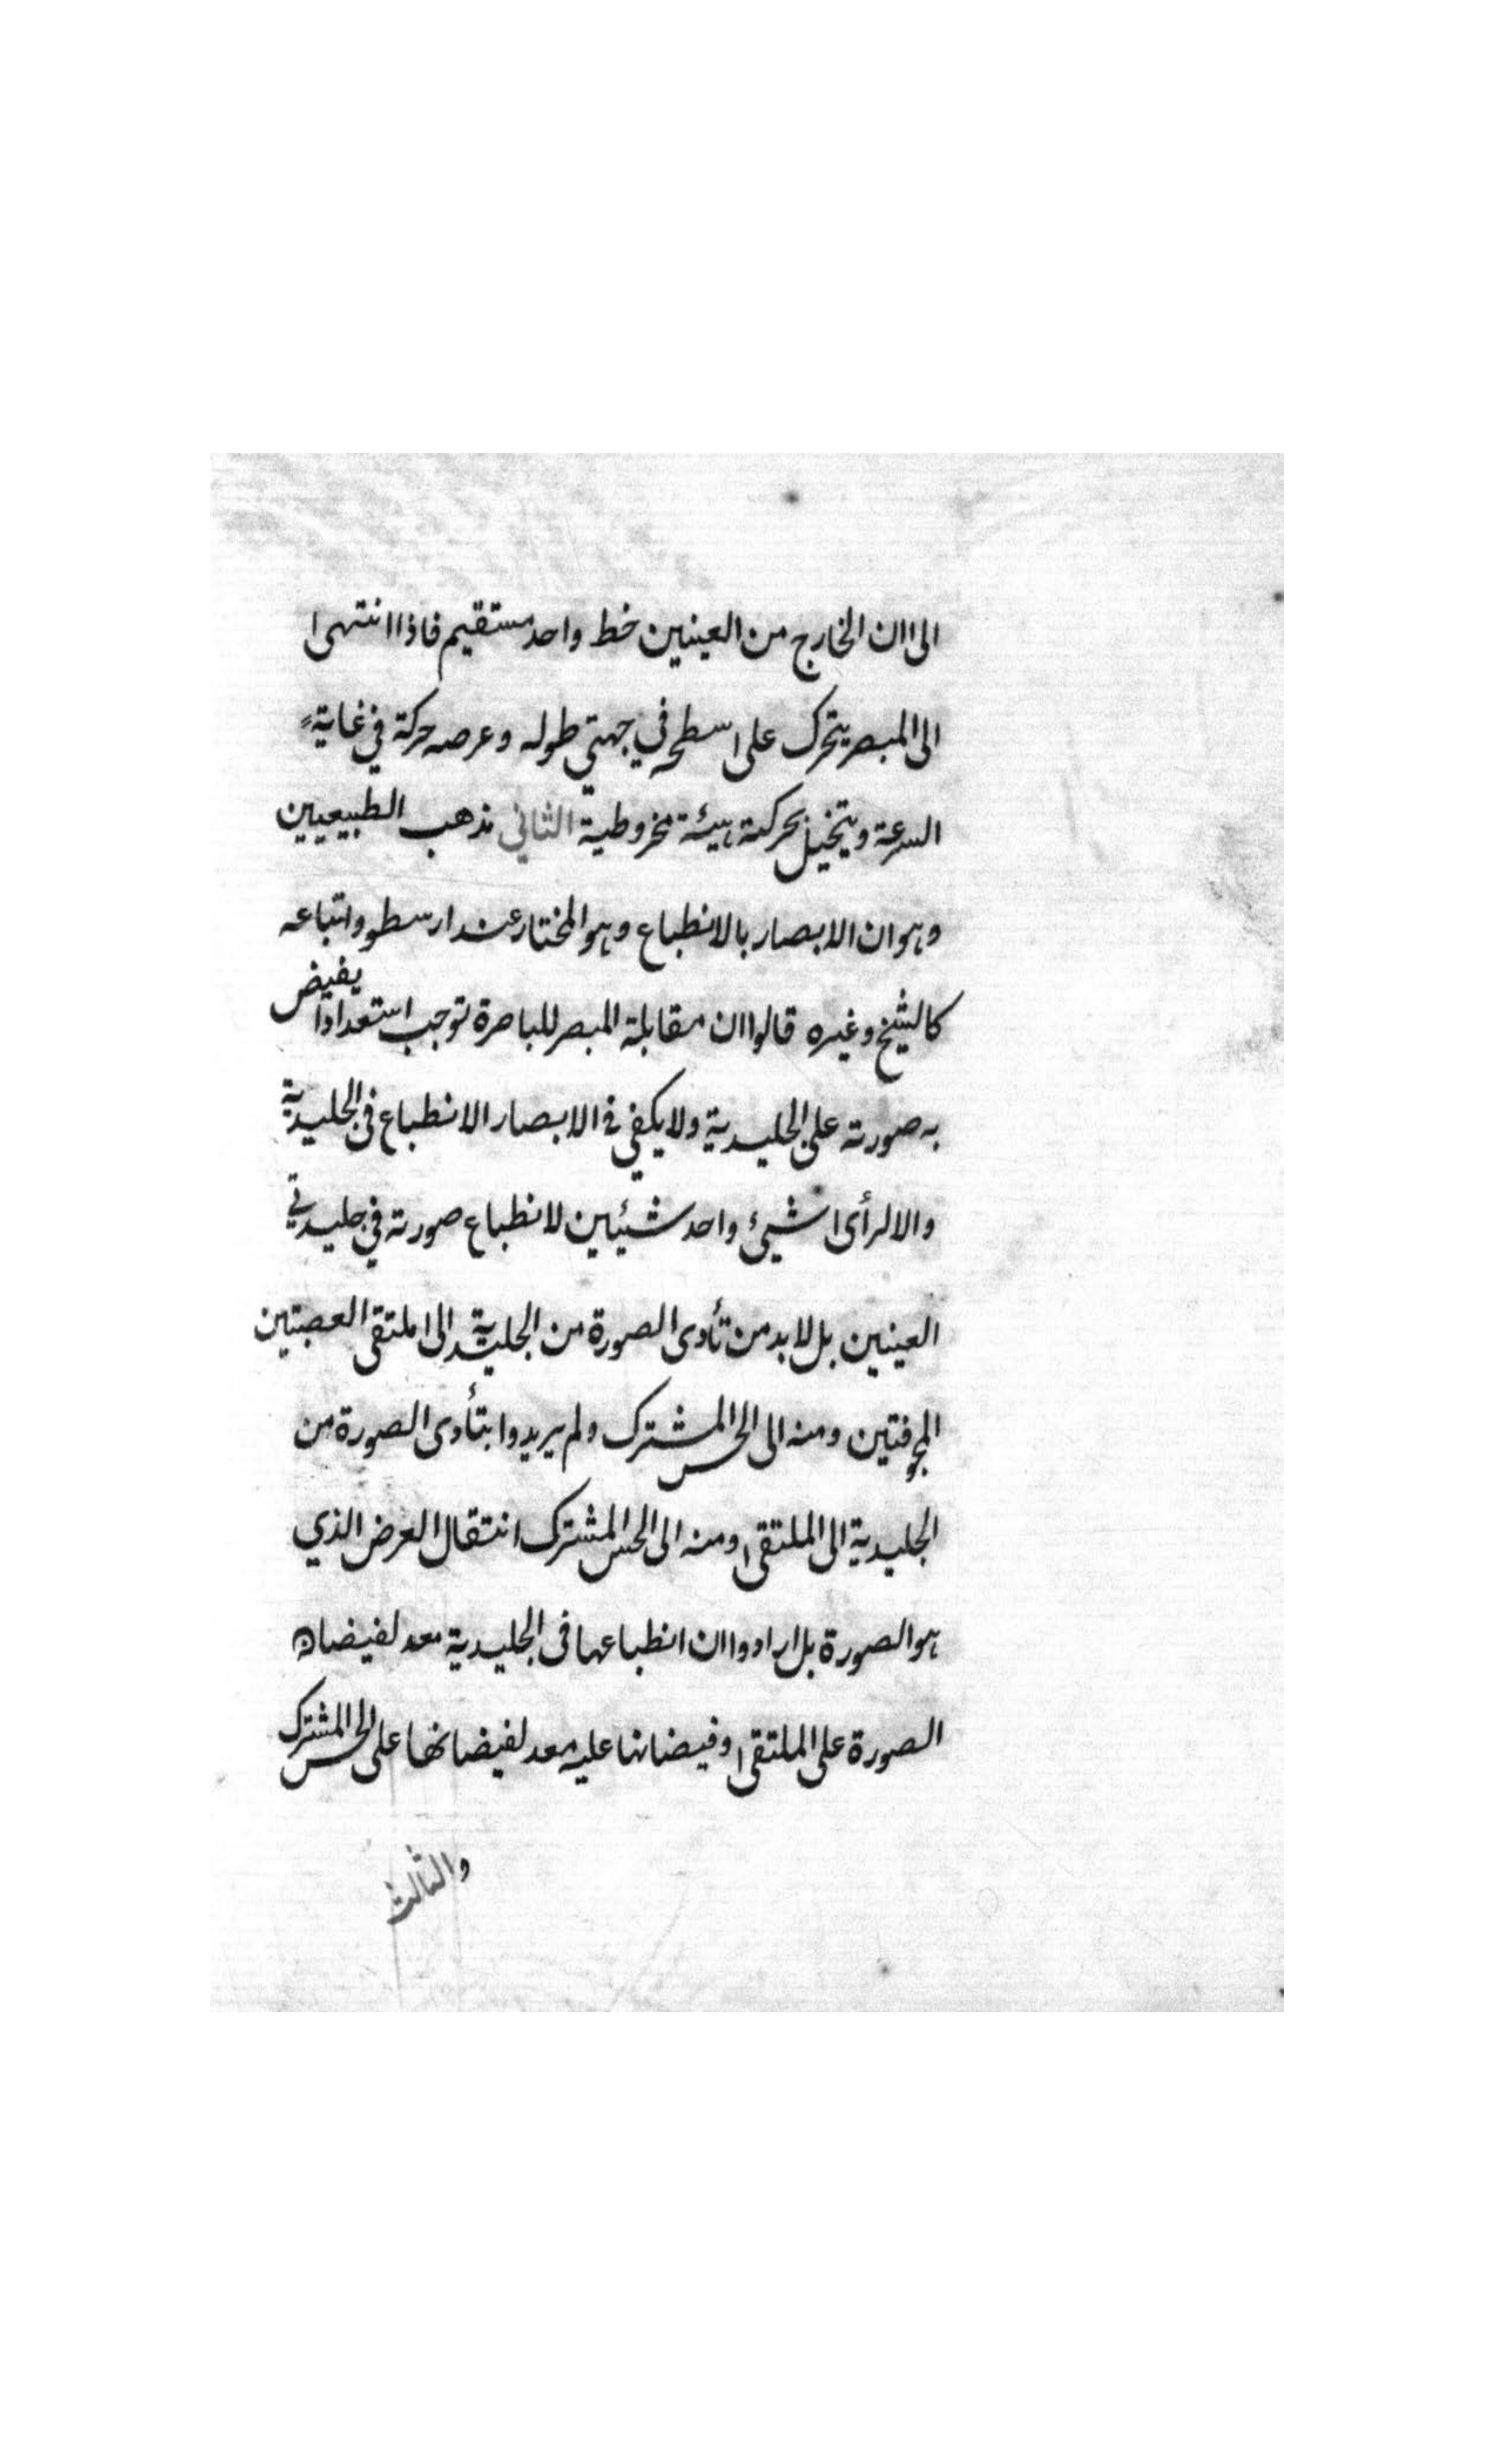 الى ان الخارج من العينين خط واحد مستقيم فاذا انتهى
الى المبصر يتحرك على سطحه في جهتي طوله وعرصه حركة في غاية
السرعة ويتخيل بحركته هيئة مخروطية الثاني مذهب الطبيعيين
وهو ان الابصار بالانطباع وهو المختار عند ارسطو واتباعه
كالشيخ وغيره قالوا ان مقابلة المبصر للباصرة توجب استعدادا يفيض
به صورته على الجليدية ولا يكفي في الابصار الانطباع في الجليدية
والا لرأى شيئ واحد شيئين لانطباع صورته في جليدتي
العينين بل لا بد من تأدى الصورة من الجليدية الى ملتقى العصبتين
المجوفتين ومنه الى الحس المشترك ولم يريدوا بتأدى الصورة من
الجليدية الى الملتقى ومنه الى الحس المشترك انتقال العرض الذي
هو الصورة بل ارادوا ان انطباعها فى الجليدية معد لفيضان
الصورة على الملتقى وفيضانها عليه معد لفيضانها على الحس المشترك
والثالث